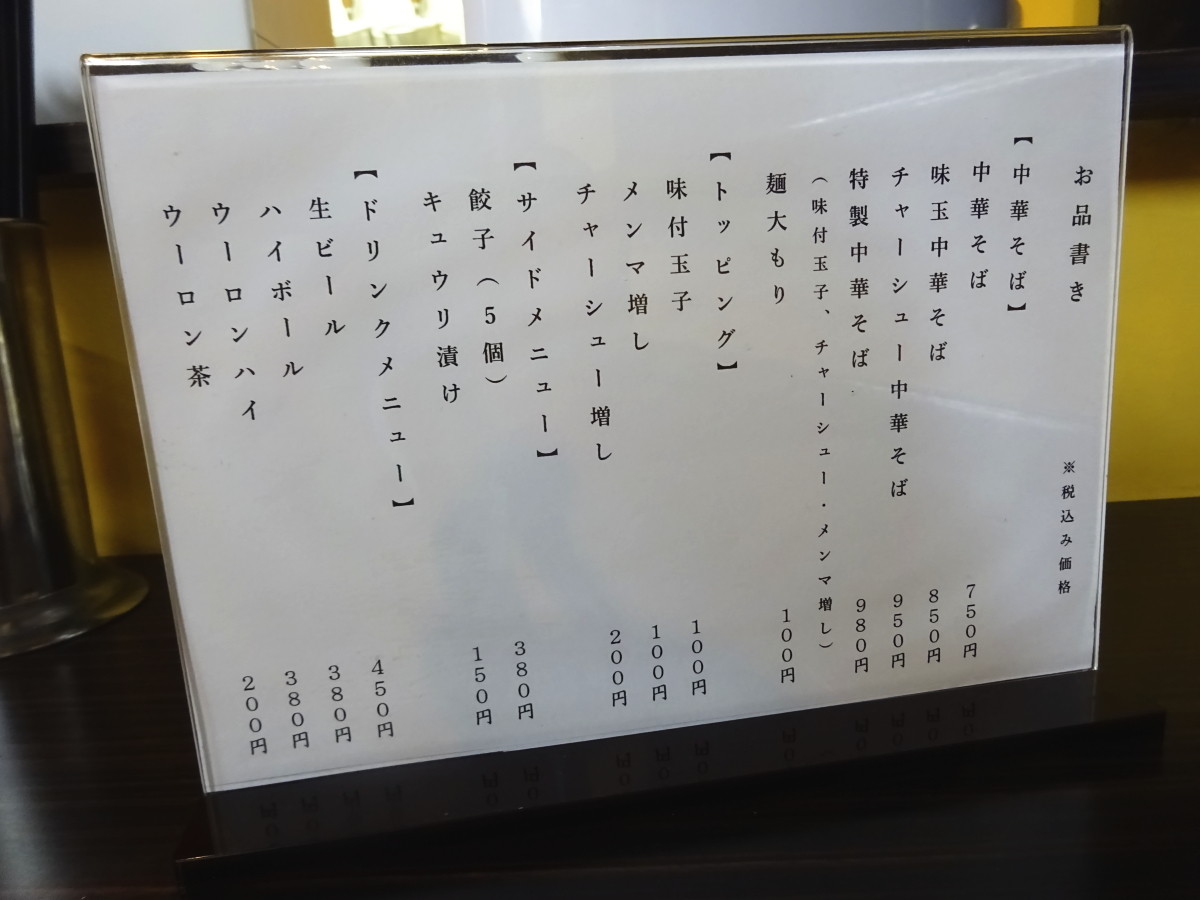 お品書き ※税込み価格
【中華そば】
中華そば 750円
味玉中華そば 850円
チャーシュー中華そば 950円
特製中華そば 980円
（味付玉子、チャーシュー・メンマ増し）
麺大もり 100円
【トッピング】
味付玉子 100円
メンマ増し 100円
チャーシュー増し 200円
【サイドメニュー】
餃子（5個） 380円
キュウリ漬け 150円
【ドリンクメニュー】
生ビール 450円
ハイボール 380円
ウーロンハイ 380円
ウーロン茶 200円